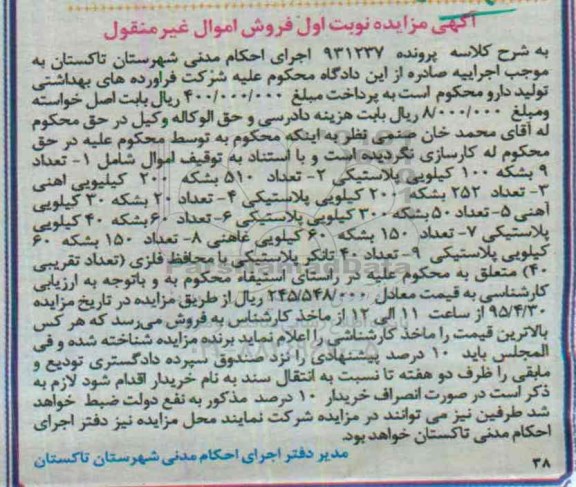 آگهی مزایده نوبت اول فروش اموال غیر منقول
به شرح کلاسه پرونده ۹۳۱۲۳۷ اجرای احکام مدنی شهرستان تاکستان به
موجب اجراییه صادره از این دادگاه محکوم علیه شرکت فراورده های بهداشتی
تولید دارو محکوم است به پرداخت مبلغ ۴۰۰/۰۰۰/۰۰۰ ریال بابت اصل خواسته
ومبلغ ۸/۰۰۰/۰۰۰ ریال بابت هزینه دادرسی و حق الوکاله وکیل در حق محکوم
له آقای محمد خان صنمی نظر به اینکه محکوم به توسط محکوم علیه در حق
محکوم له کارسازی نگردیده است و با استناد به توقیف اموال شامل ۱- تعداد
۹ بشکه ۱۰۰ کیلویی پلاستیکی ۲- تعداد ۵۱۰ بشکه ۲۰۰ کیلیویی اهنی
۳- تعداد ۲۵۲ بشکه ۲۰۰ کیلویی پلاستیکی ۴- تعداد ۲۰ بشکه ۳۰ کیلویی
آهنی ۵- تعداد ۵۰ بشکه ۳۰۰ کیلویی پلاستیکی ۶- تعداد ۶۰ بشکه ۴۰ کیلویی
پلاستیکی ۷- تعداد ۱۵۰ بشکه ۶۰ کیلویی غاهنی ۸- تعداد ۱۵۰ بشکه ۶۰
کیلویی پلاستیکی ۹- تعداد ۴۰ تانکر پلاستیکی با محافظ فلزی (تعداد تقریبی
۴۰) متعلق به محکوم علیه در راستای استیفاء محکوم به و باتوجه به ارزیابی
کارشناسی به قیمت معادل ۲۴۵/۵۴۸/۰۰۰ ریال از طریق مزایده در تاریخ مزایده
۹۵/۴/۳۰ از ساعت ۱۱ الی ۱۲ از ماخذ کارشناس به فروش می‌رسد که هر کس
بالاترین قیمت را ماخذ کارشناشی را اعلام نماید برنده مزایده شناخته شده و فی
المجلس باید ۱۰ درصد پیشنهادی را نزد صندوق سپرده دادگستری تودیع و
مابقی را ظرف دو هفته تا نسبت به انتقال سند به نام خریدار اقدام شود لازم به
ذکر است در صورت انصراف خریدار ۱۰ درصد مذکور به نفع دولت ضبط خواهد
شد طرفین نیز می توانند در مزایده شرکت نمایند محل مزایده نیز دفتر اجرای
احکام مدنی تاکستان خواهد بود.
مدیر دفتر اجرای احکام مدنی شهرستان تاکستان
۳۸